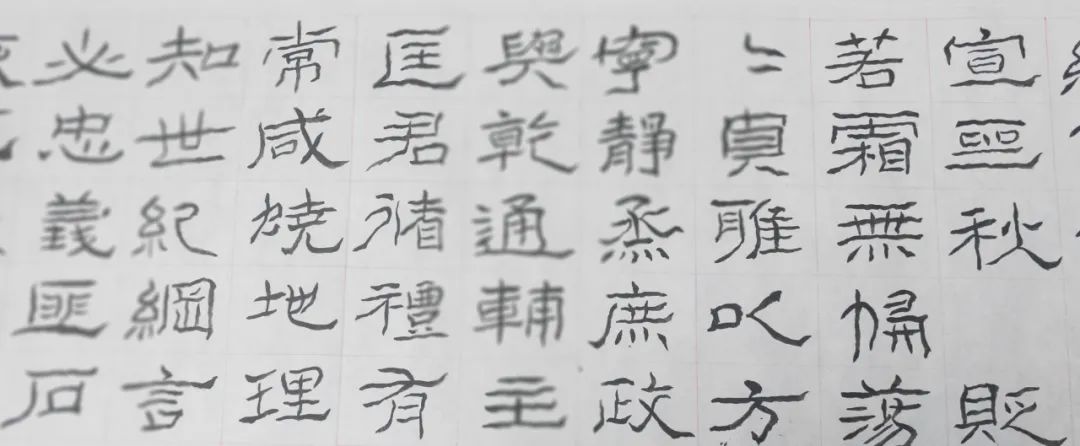 宣秋貶
若霜無偏蕩
〻貞雅以方
寧靜烝庶政
與乾通輔主
匡君循禮有
常咸曉地理
知世紀綱言
必忠義匪石